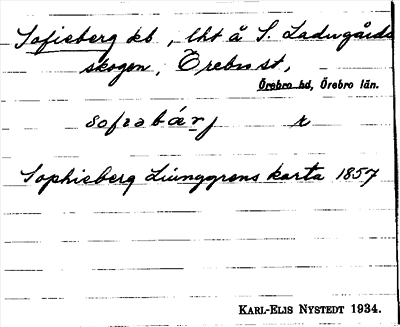 Sofieberg kb, lht å S. Ladugårds
skogen, Örebro st,
Örebro hd, Örebro län.
sofiəbær̲j r
Sophieberg Ljunggrens karta 1857
KARL-ELIS NYSTEDT 1934.